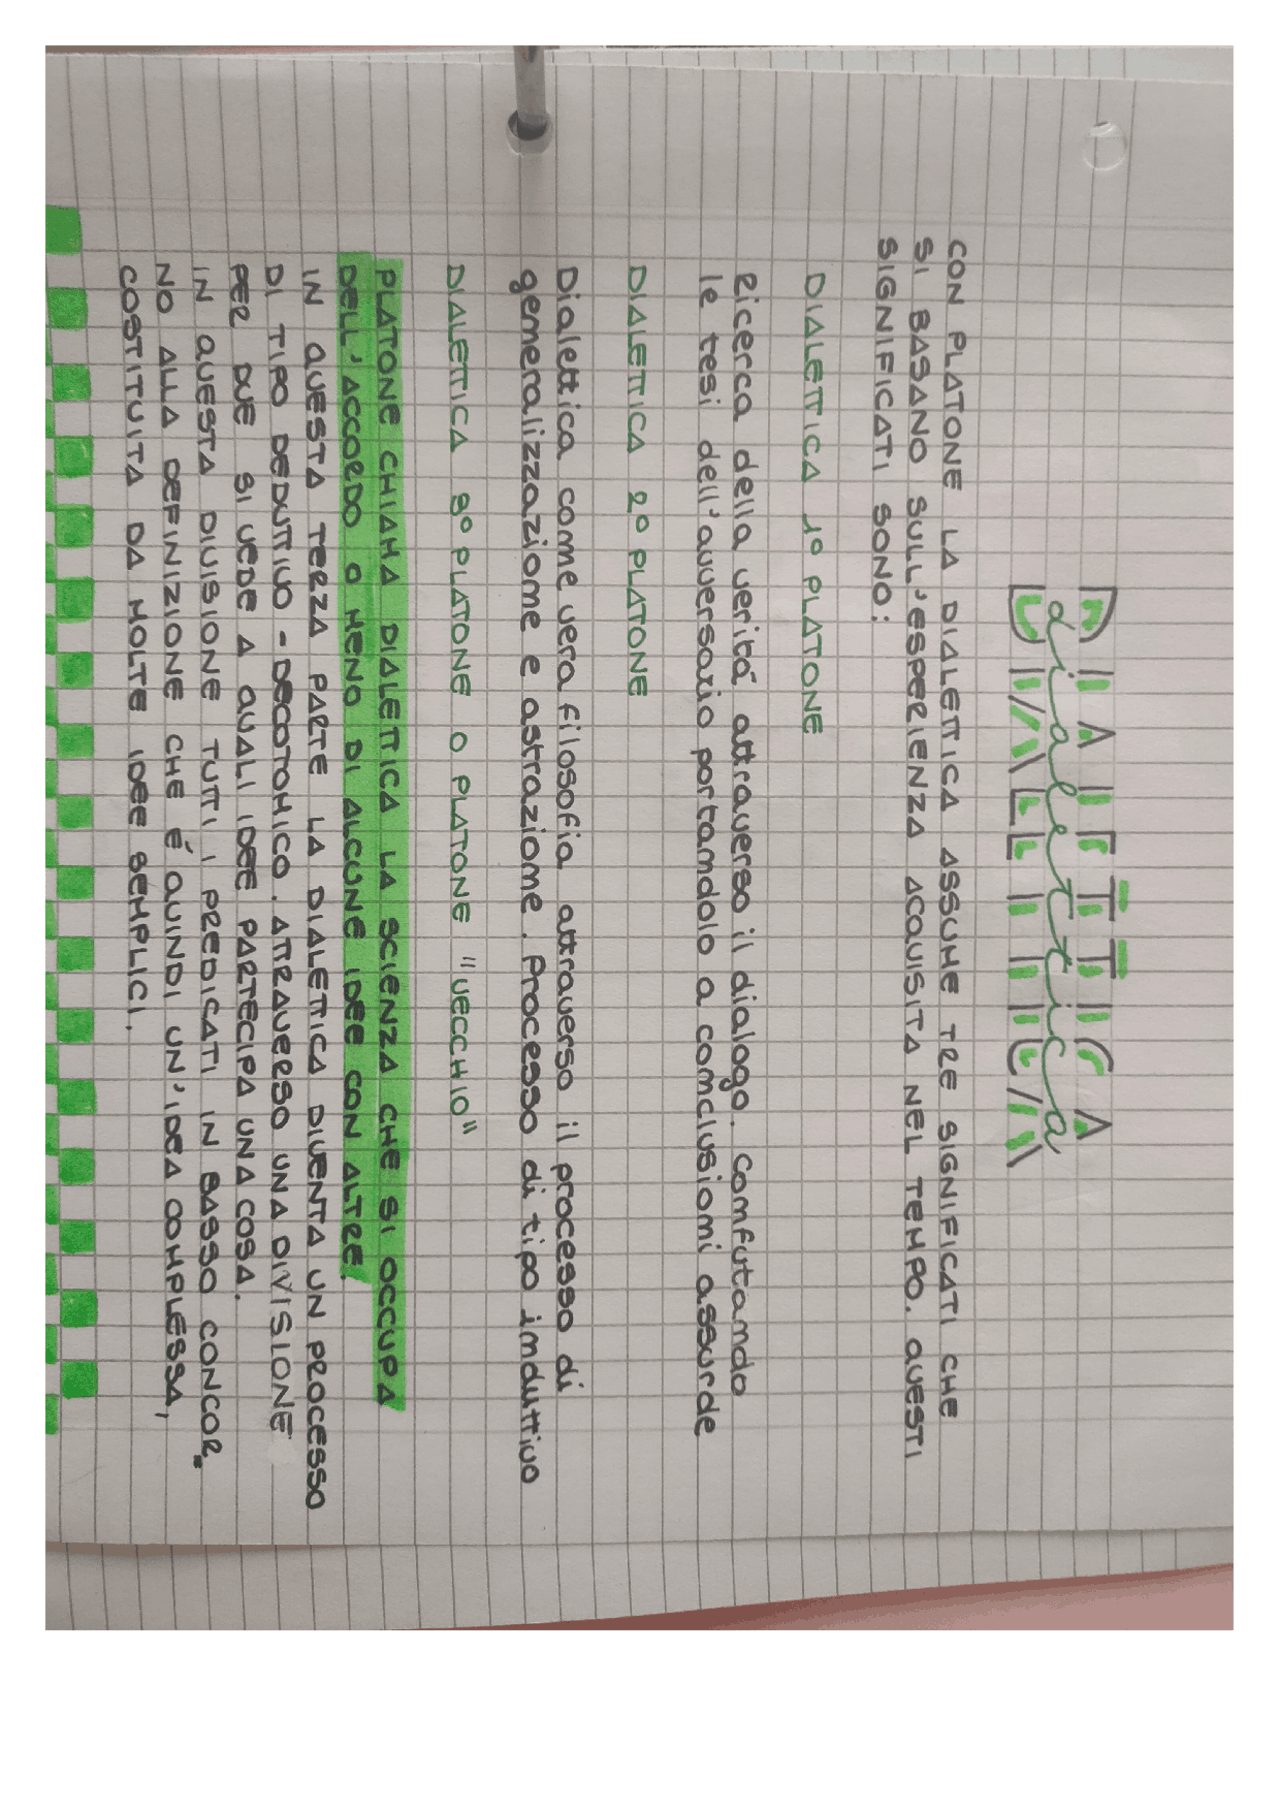 DIALETTICA
dialettica
DIALETTICA
CON PLATONE LA DIALETTICA ASSUME TRE SIGNIFICATI CHE
SI BASANO SULL'ESPERIENZA ACQUISITA NEL TEMPO. QUESTI
SIGNIFICATI SONO:
DIALETTICA 1º PLATONE
Ricerca della veritá attraverso il dialogo. Confutando
le tesi dell'avversario portandolo a conclusioni assurde
DIALETTICA 2º PLATONE
Dialettica come vera filosofia attraverso il processo di
generalizzazione e astrazione. Processo di tipo induttivo
DIALETTICA 3º PLATONE O PLATONE "VECCHIO"
PLATONE CHIAMA DIALETTICA LA SCIENZA CHE SI OCCUPA
DELL'ACCORDO O MENO DI ALCUNE IDEE CON ALTRE.
IN QUESTA TERZA PARTE LA DIALETTICA DIVENTA UN PROCESSO
DI TIPO DEDUTTIVO - DECOTOMICO. ATTRAVERSO UNA DIVISIONE
PER DUE SI VEDE A QUALI IDEE PARTECIPA UNA COSA.
IN QUESTA DIVISIONE TUTTI I PREDICATI IN BASSO CONCOR=
NO ALLA DEFINIZIONE CHE É QUINDI UN'IDEA COMPLESSA,
COSTITUITA DA MOLTE IDEE SEMPLICI.